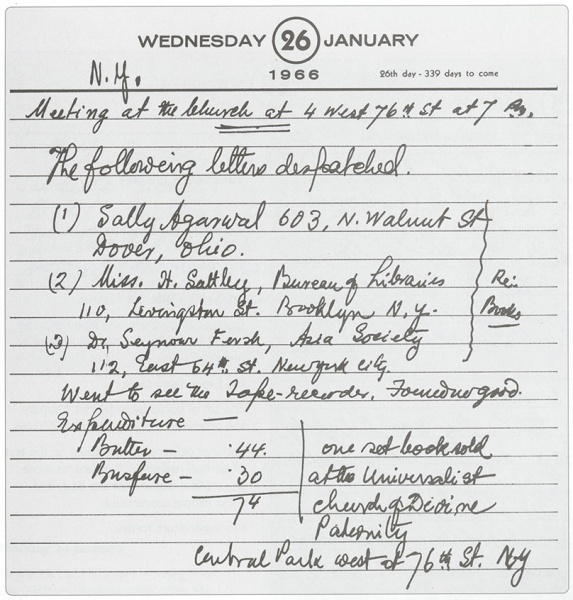 WEDNESDAY 26 JANUARY
1966
26th day - 339 days to come
N.Y.
Meeting at the Church at 4 West 76th St at 7 Pm.
The following letters despatched.
(1) Sally Agarwal 603, N. Walnut St
Dover, Ohio.
(2) Miss. H. Sattley, Bureau of Libraries
110, Levingston St. Brooklyn N.Y.
(3) Dr, Seymour Fersh, Asia Society
112, East 64th. St. New york City.
Re:
Books
Went to see the Tape-recorder. Found no good.
Expenditure —
Butter — .44.
Busfare — .30
74
one set book sold
at the Universalist
church of Divine
Paternity
Central Park west at 76th St. N.Y